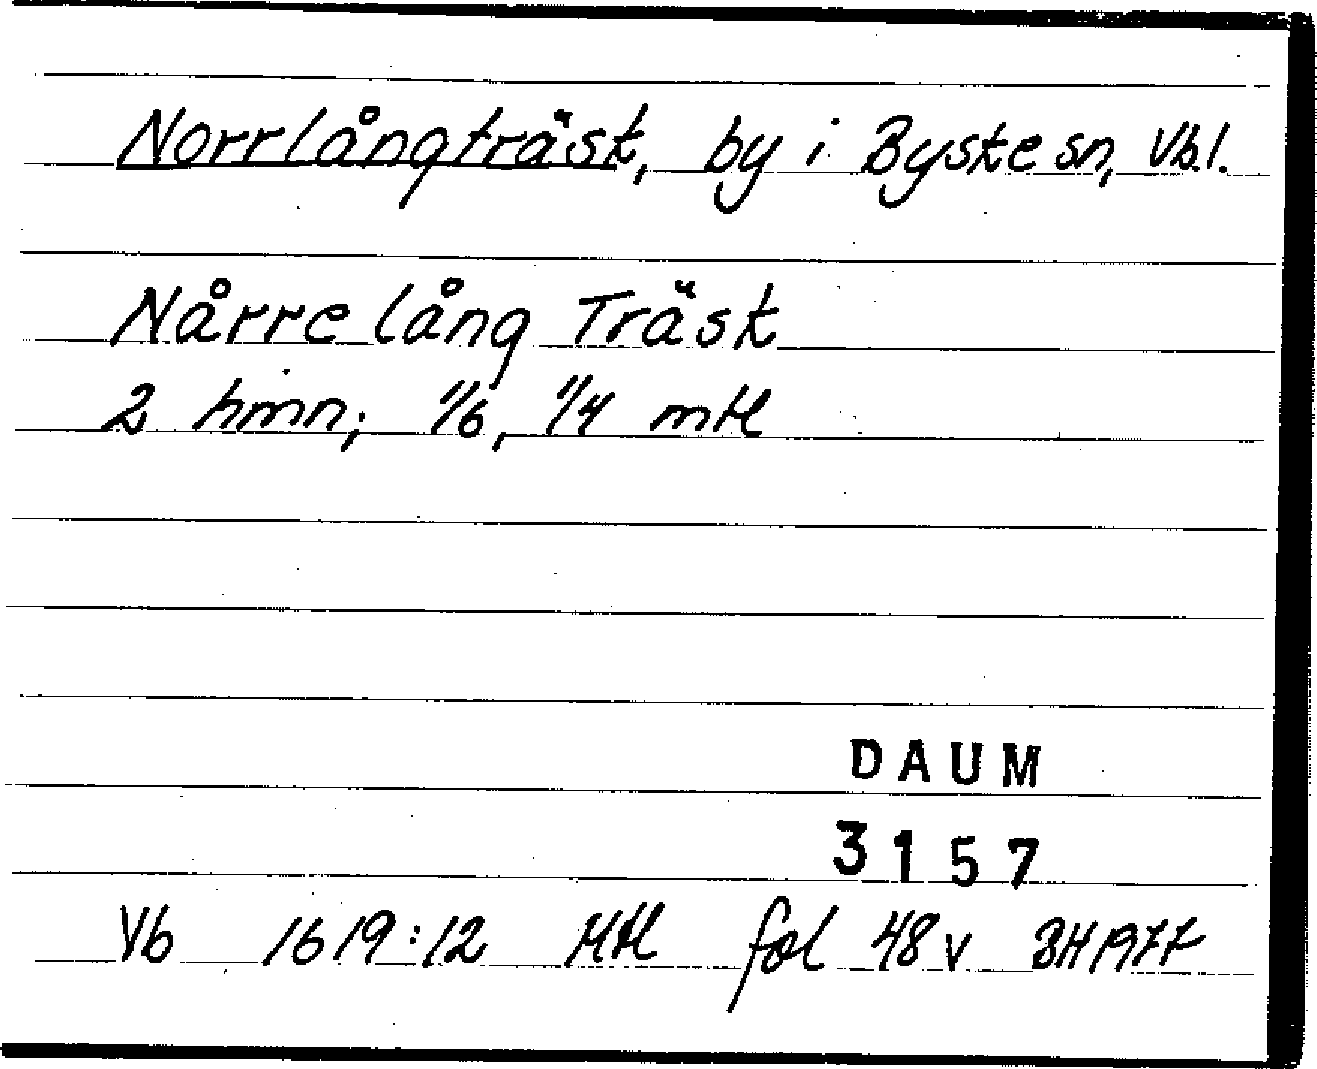 Norrlångträsk, by i Byske sn, Vb.l.
Nårre lång Träsk
2 hmn; 1/6, 1/4 mtl
DAUM
3157
Vb 1619:12 Mtl fol 48v BH1977